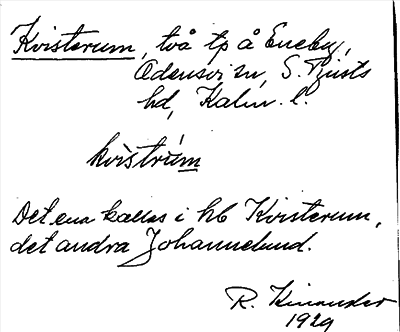 Kvisterum, två tp å Eneby,
Odensvi sn, S. Tjusts
hd, Kalm. l.
kvistrúm
Det ena kallas i hb Kvisterum,
det andra Johannelund.
R. Kinander
1929